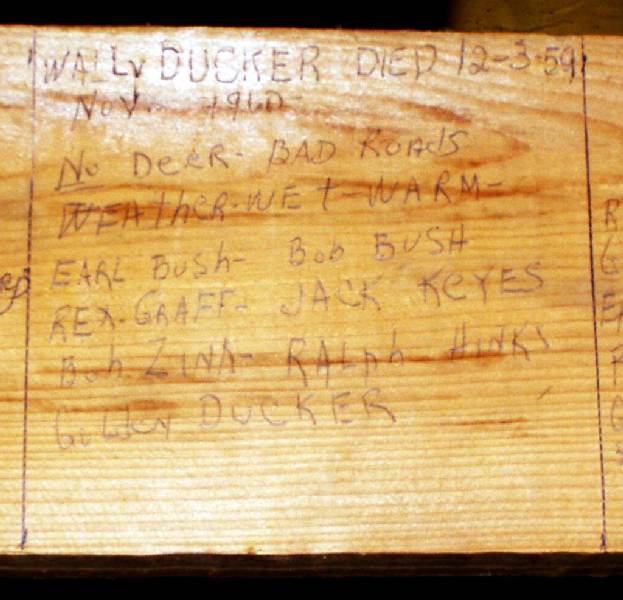 WALLY DUCKER DIED 12-3-59
NOV. 1960-
No DeeR- BAD ROADS
WEATheR-WET-WARM-
EARL BUSh- Bob BUSH
REX-GRAFF- JACK KeYES
Bob ZINK- RALPh HINKS
DUCKER